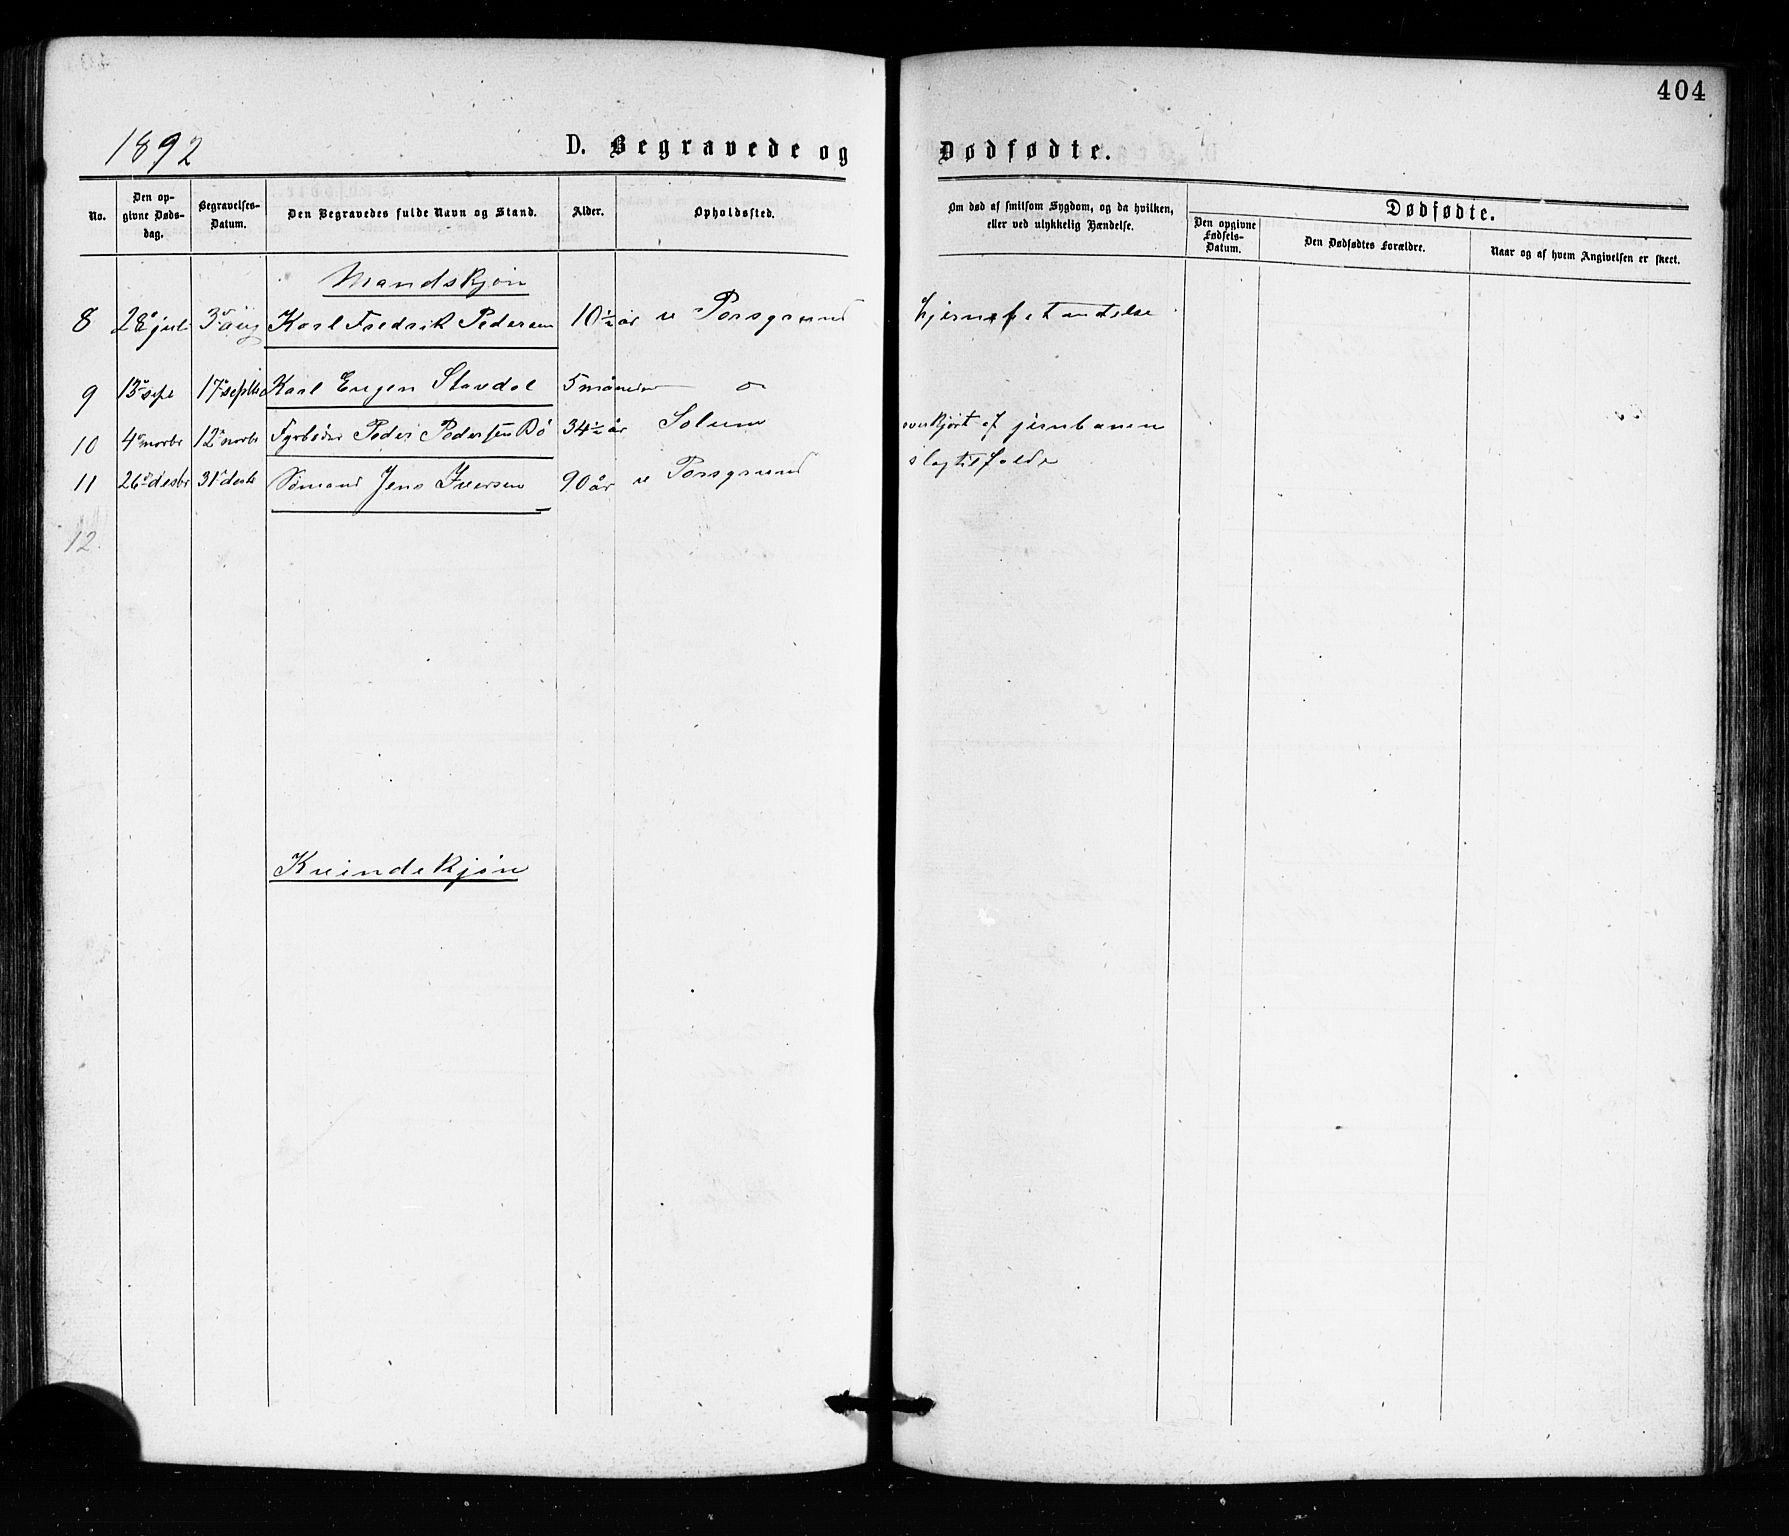 404
1892
D. Begravede og Dødfødte.
No. Den opgivne Dødsdag. Begravelses-Datum. Den Begravedes fulde Navn og Stand. Alder. Opholdssted. Om død af smitsom Sygdom, og da hvilken, eller ved ulykkelig Hændelse. Dødfødte. Den opgivne Fødsels-Datum. Den Dødfødtes Forældre. Naar og af hvem Angivelsen er skeet.
Mandskjøn
8 28 juli 3 aug Karl Fredrik Pedersen 10½ år v Porsgrund hjernebetændelse
9 13 sept 17 septbr Karl Eugen Stavdal 5 måneder
10 4 novbr 12 novbr Fyrbøder Peder Pedersen Bø 34½ år Solum overkjørt af jernbanen
11 26 desbr 31 desbr Sømand Jens Iversen 90 år v Porsgrund slagtilfælde
12.
Kvindekjøn